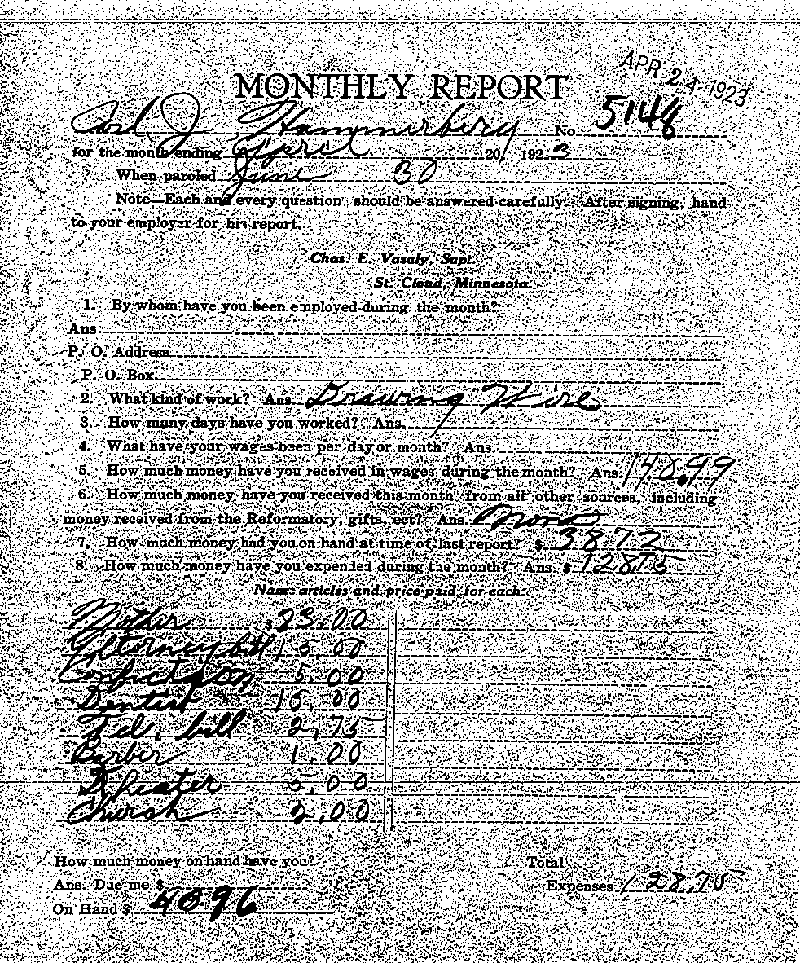 APR 24 1923
MONTHLY REPORT
Carl J. Hammerberg No. 5148
for the month ending April 20, 1923
When paroled June 30
Note—Each and every question should be answered carefully. After signing, hand
to your employer for his report.
Chas. E. Vasaly, Supt.
St. Cloud, Minnesota.
1. By whom have you been employed during the month?
Ans
P. O. Address
P. O. Box
2. What kind of work? Ans. Drawing Wire
3. How many days have you worked? Ans.
4. What have your wages been per day or month? Ans.
5. How much money have you received in wages during the month? Ans. 148.99
6. How much money have you received this month, from all other sources, including
money received from the Reformatory, gifts, ect? Ans. None
7. How much money had you on hand at time of last report? $ 38.72
8. How much money have you expended during the month? Ans. $ 128.75
Name articles and price paid for each:
Mother 83.00
Attorney bill 15.00
5.00
Dentist 15.00
Tel. bill 2.75
Barber 1.00
Theater 5.00
Church 2.00
How much money on hand have you?
Ans. Due me $
On Hand $ 4096
Total
Expenses 128.75